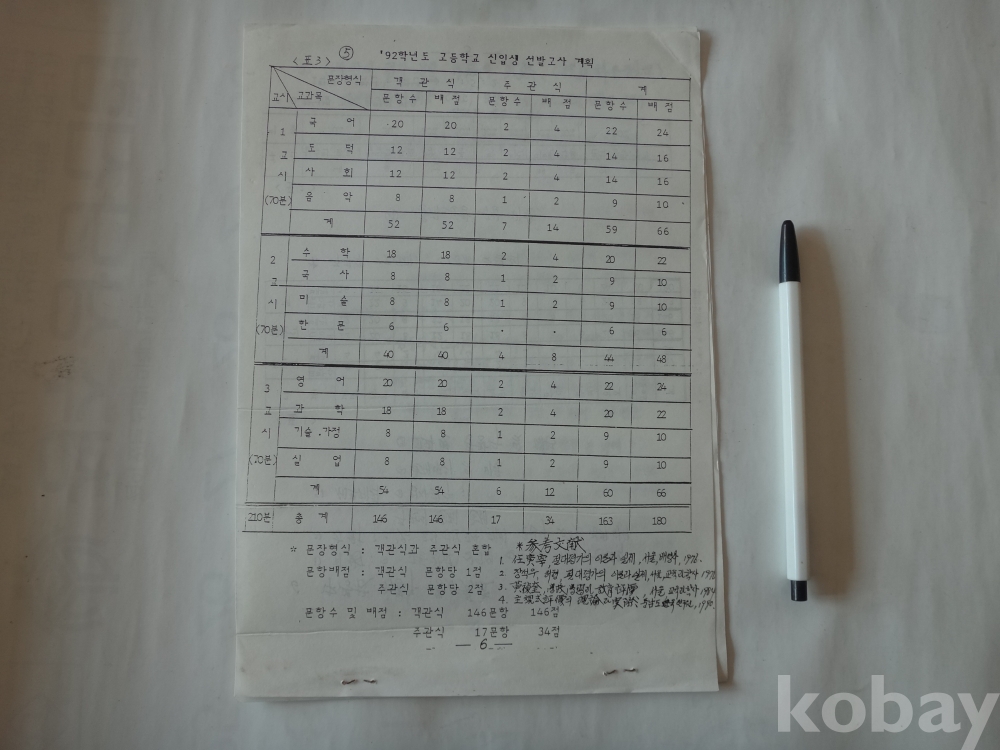 <표3> ⑤ '92학년도 고등학교 신입생 선발고사 계획
문장형식 객관식 주관식 계
교시 교과목 문항수 배점 문항수 배점 문항수 배점
1 국어 20 20 2 4 22 24
교 도덕 12 12 2 4 14 16
시 사회 12 12 2 4 14 16
(70분) 음악 8 8 1 2 9 10
계 52 52 7 14 59 66
2 수학 18 18 2 4 20 22
교 국사 8 8 1 2 9 10
시 미술 8 8 1 2 9 10
(70분) 한문 6 6 . . 6 6
계 40 40 4 8 44 48
3 영어 20 20 2 4 22 24
교 과학 18 18 2 4 20 22
시 기술.가정 8 8 1 2 9 10
(70분) 실업 8 8 1 2 9 10
계 54 54 6 12 60 66
210분 총계 146 146 17 34 163 180
☆ 문장형식 : 객관식과 주관식 혼합
문항배점 : 객관식 문항당 1점
주관식 문항당 2점
문항수 및 배점 : 객관식 146문항 146점
주관식 17문항 34점
*参考文献
1. 서울, 1976.
2. 서울, 1978
3. 教育評價, 서울, 1984
4. 1990.
— 6 —
kobay